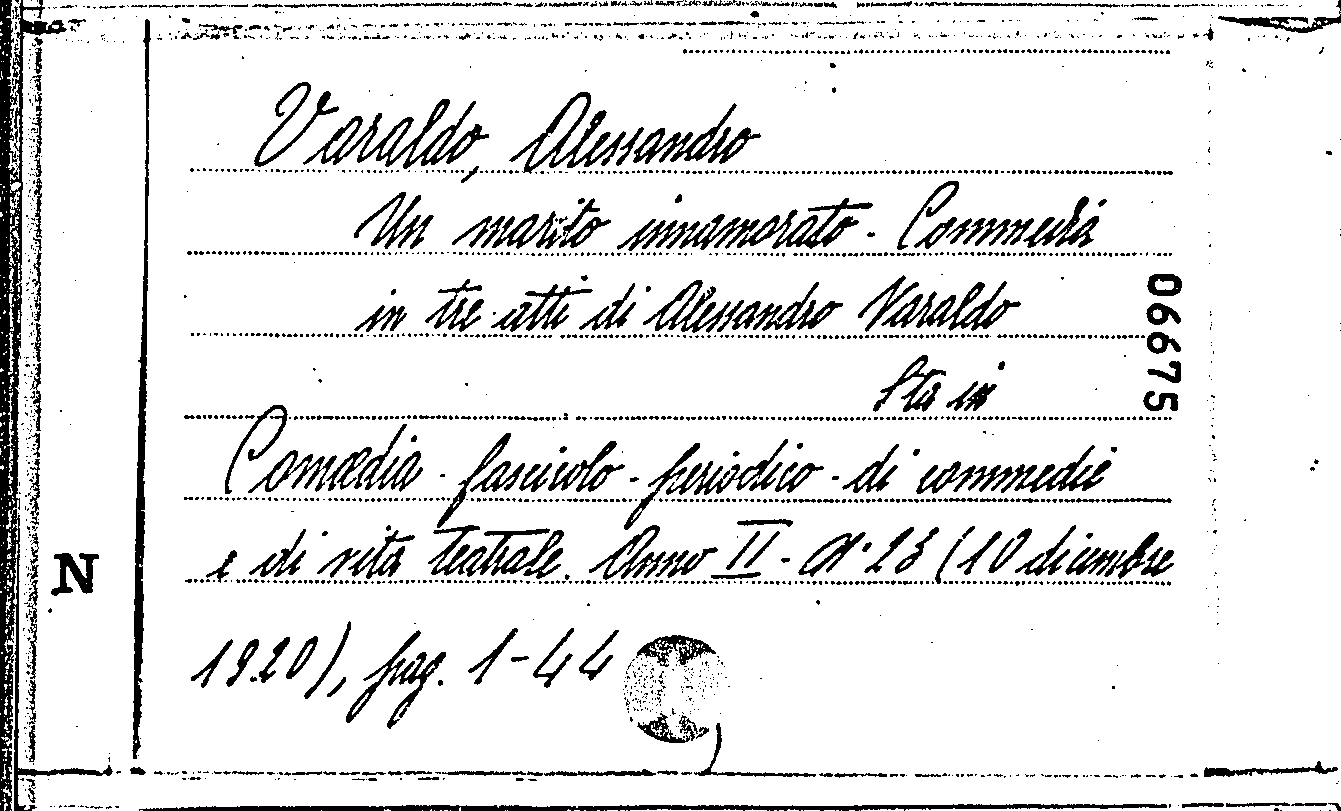 Varaldo, Alessandro
Un marito innamorato - Commedia
in tre atti di Alessandro Varaldo
Sta in
Comœdia - fascicolo - periodico - di commedie
e di vita teatrale. Anno II - N. 23 (10 dicembre
1920), pag. 1-44
06675
N